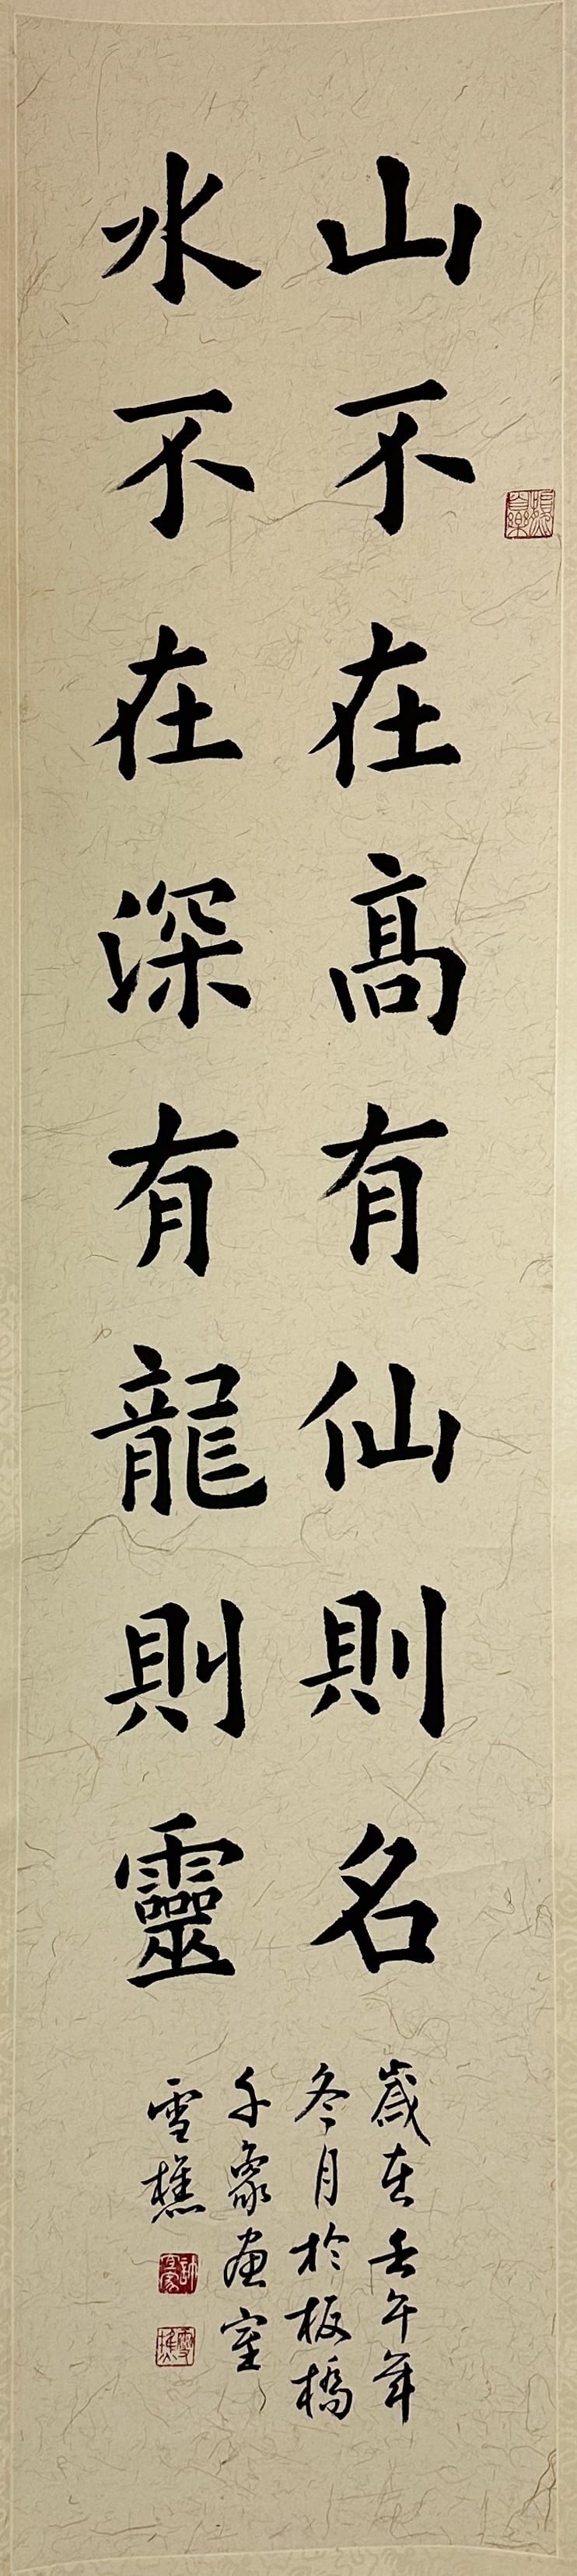 山不在高有仙則名
水不在深有龍則靈
歲在壬午年
冬月於板橋
千象画室
雪樵